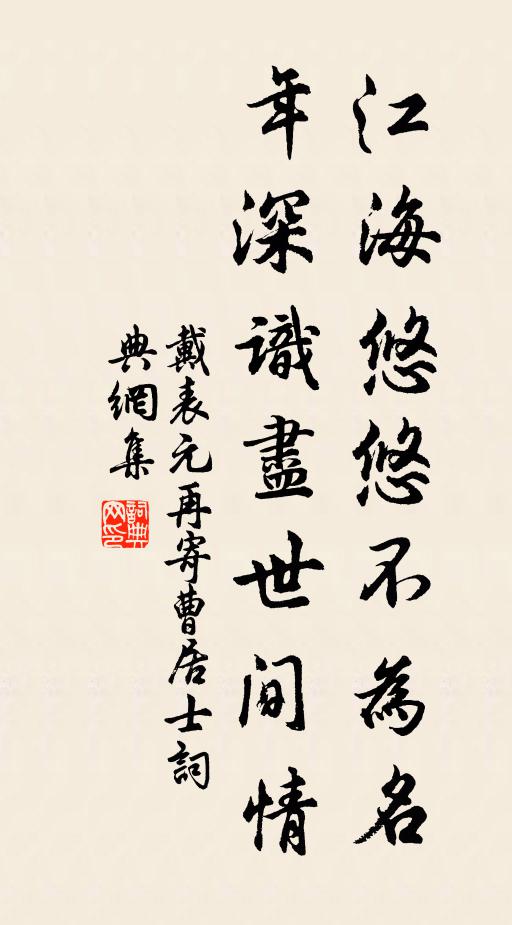 江海悠悠不為名
年深識盡世間情
戴表元再寄曹居士詞
典網集
詞典
网印